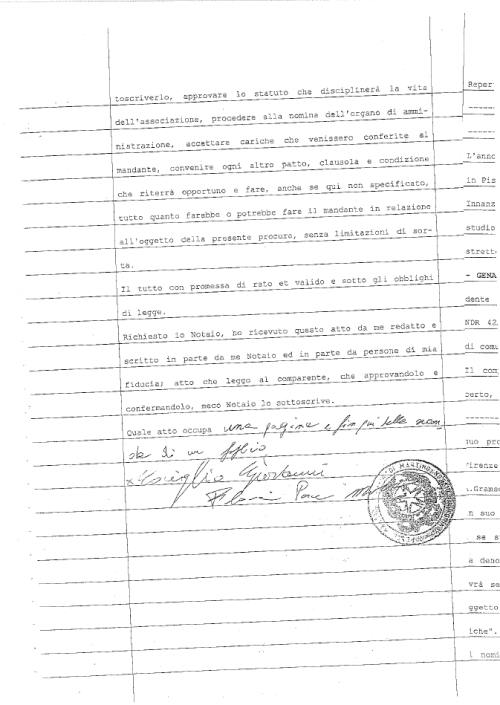 toscriverlo, approvare lo statuto che disciplinerà la vita
dell'associazione, procedere alla nomina dell'organo di ammi-
nistrazione, accettare cariche che venissero conferite al
mandante, convenire ogni altro patto, clausola e condizione
che riterrà opportuno e fare, anche se qui non specificato,
tutto quanto farebbe o potrebbe fare il mandante in relazione
all'oggetto della presente procura, senza limitazioni di sor-
ta.
Il tutto con promessa di rato et valido e sotto gli obblighi
di legge.
Richiesto io Notaio, ho ricevuto questo atto da me redatto e
scritto in parte da me Notaio ed in parte da persone di mia
fiducia; atto che leggo al comparente, che approvandolo e
confermandolo, meco Notaio lo sottoscrive.
Quale atto occupa una pagina e fin qui della
di un foglio
DI MARTINO
Reper
------
------
L'anno
in Pis
Innanz
studio
strett
- GENA
dente
NDR 42
di comu
Il com
perto,
------
suo pro
Firenze
.Grams
n suo
se s
a deno
vrà se
ggetto
iche".
i nomi